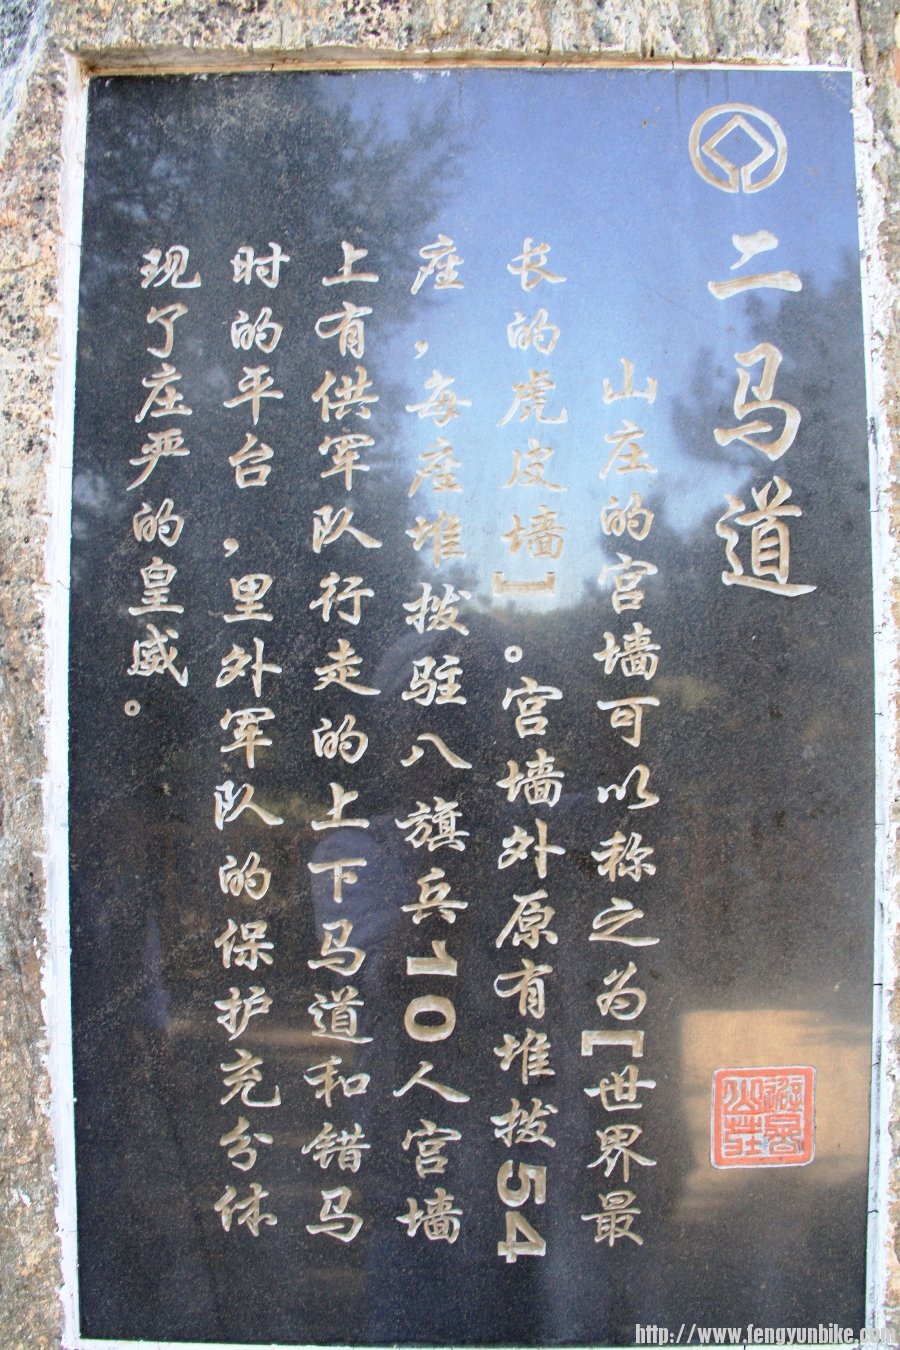 二马道
山庄的宫墙可以称之为[世界最
长的虎皮墙]。宫墙外原有堆拔54
座，每座堆拔驻八旗兵10人宫墙
上有供军队行走的上下马道和错马
时的平台，里外军队的保护充分体
现了庄严的皇威。
避暑山庄
http://www.fengyunbike.com